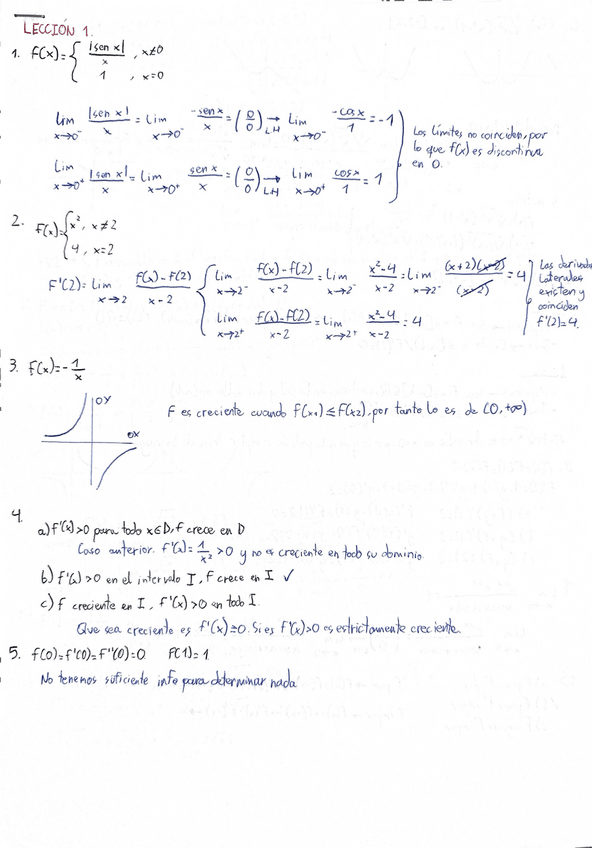 LECCIÓN 1.
1. f(x)= { |sen x| / x , x≠0
1 , x=0
lim x→0⁻ |sen x| / x = lim x→0⁻ -sen x / x = (0/0) →LH lim x→0⁻ -cos x / 1 = -1
lim x→0⁺ |sen x| / x = lim x→0⁺ sen x / x = (0/0) →LH lim x→0⁺ cos x / 1 = 1
Los límites no coinciden, por
lo que f(x) es discontinua
en 0.
2. f(x)= { x², x≠2
4, x=2
F'(2)= lim x→2 f(x)-f(2) / x-2 { lim x→2⁻ f(x)-f(2) / x-2 = lim x→2⁻ x²-4 / x-2 = lim x→2⁻ (x+2)(x-2) / (x-2) = 4
lim x→2⁺ f(x)-f(2) / x-2 = lim x→2⁺ x²-4 / x-2 = 4
Las derivadas
laterales
existen y
coinciden
f'(2)=4.
3. f(x)=-1/x
OY
OX
F es creciente cuando f(x1) ≤ f(x2), por tanto lo es de (0, +∞)
4.
a) f'(x)>0 para todo x∈D, f crece en D
Caso anterior. f'(x)= 1/x² >0 y no es creciente en todo su dominio.
b) f'(x)>0 en el intervalo I, f crece en I ✓
c) f creciente en I, f'(x)>0 en todo I.
Que sea creciente es f'(x)≥0. Si es f'(x)>0 es estrictamente creciente.
5. f(0)=f'(0)=f''(0)=0. f(1)=1.
No tenemos suficiente info para determinar nada